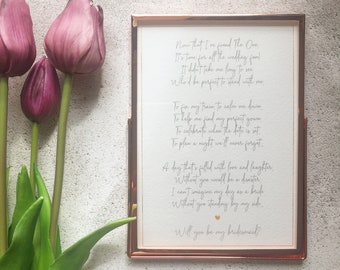 Now that I've found The One,
It's time for all the wedding fun!
It didn't take me long to see
Who'd be perfect to stand with me.
To pin my train to calm me down
To help me find my perfect gown
To celebrate when the date is set,
To plan a night we'll never forget.
A day that's filled with love and laughter,
Without you would be a disaster
I can't imagine my day as a bride
Without you standing by my side.
Will you be my bridesmaid?